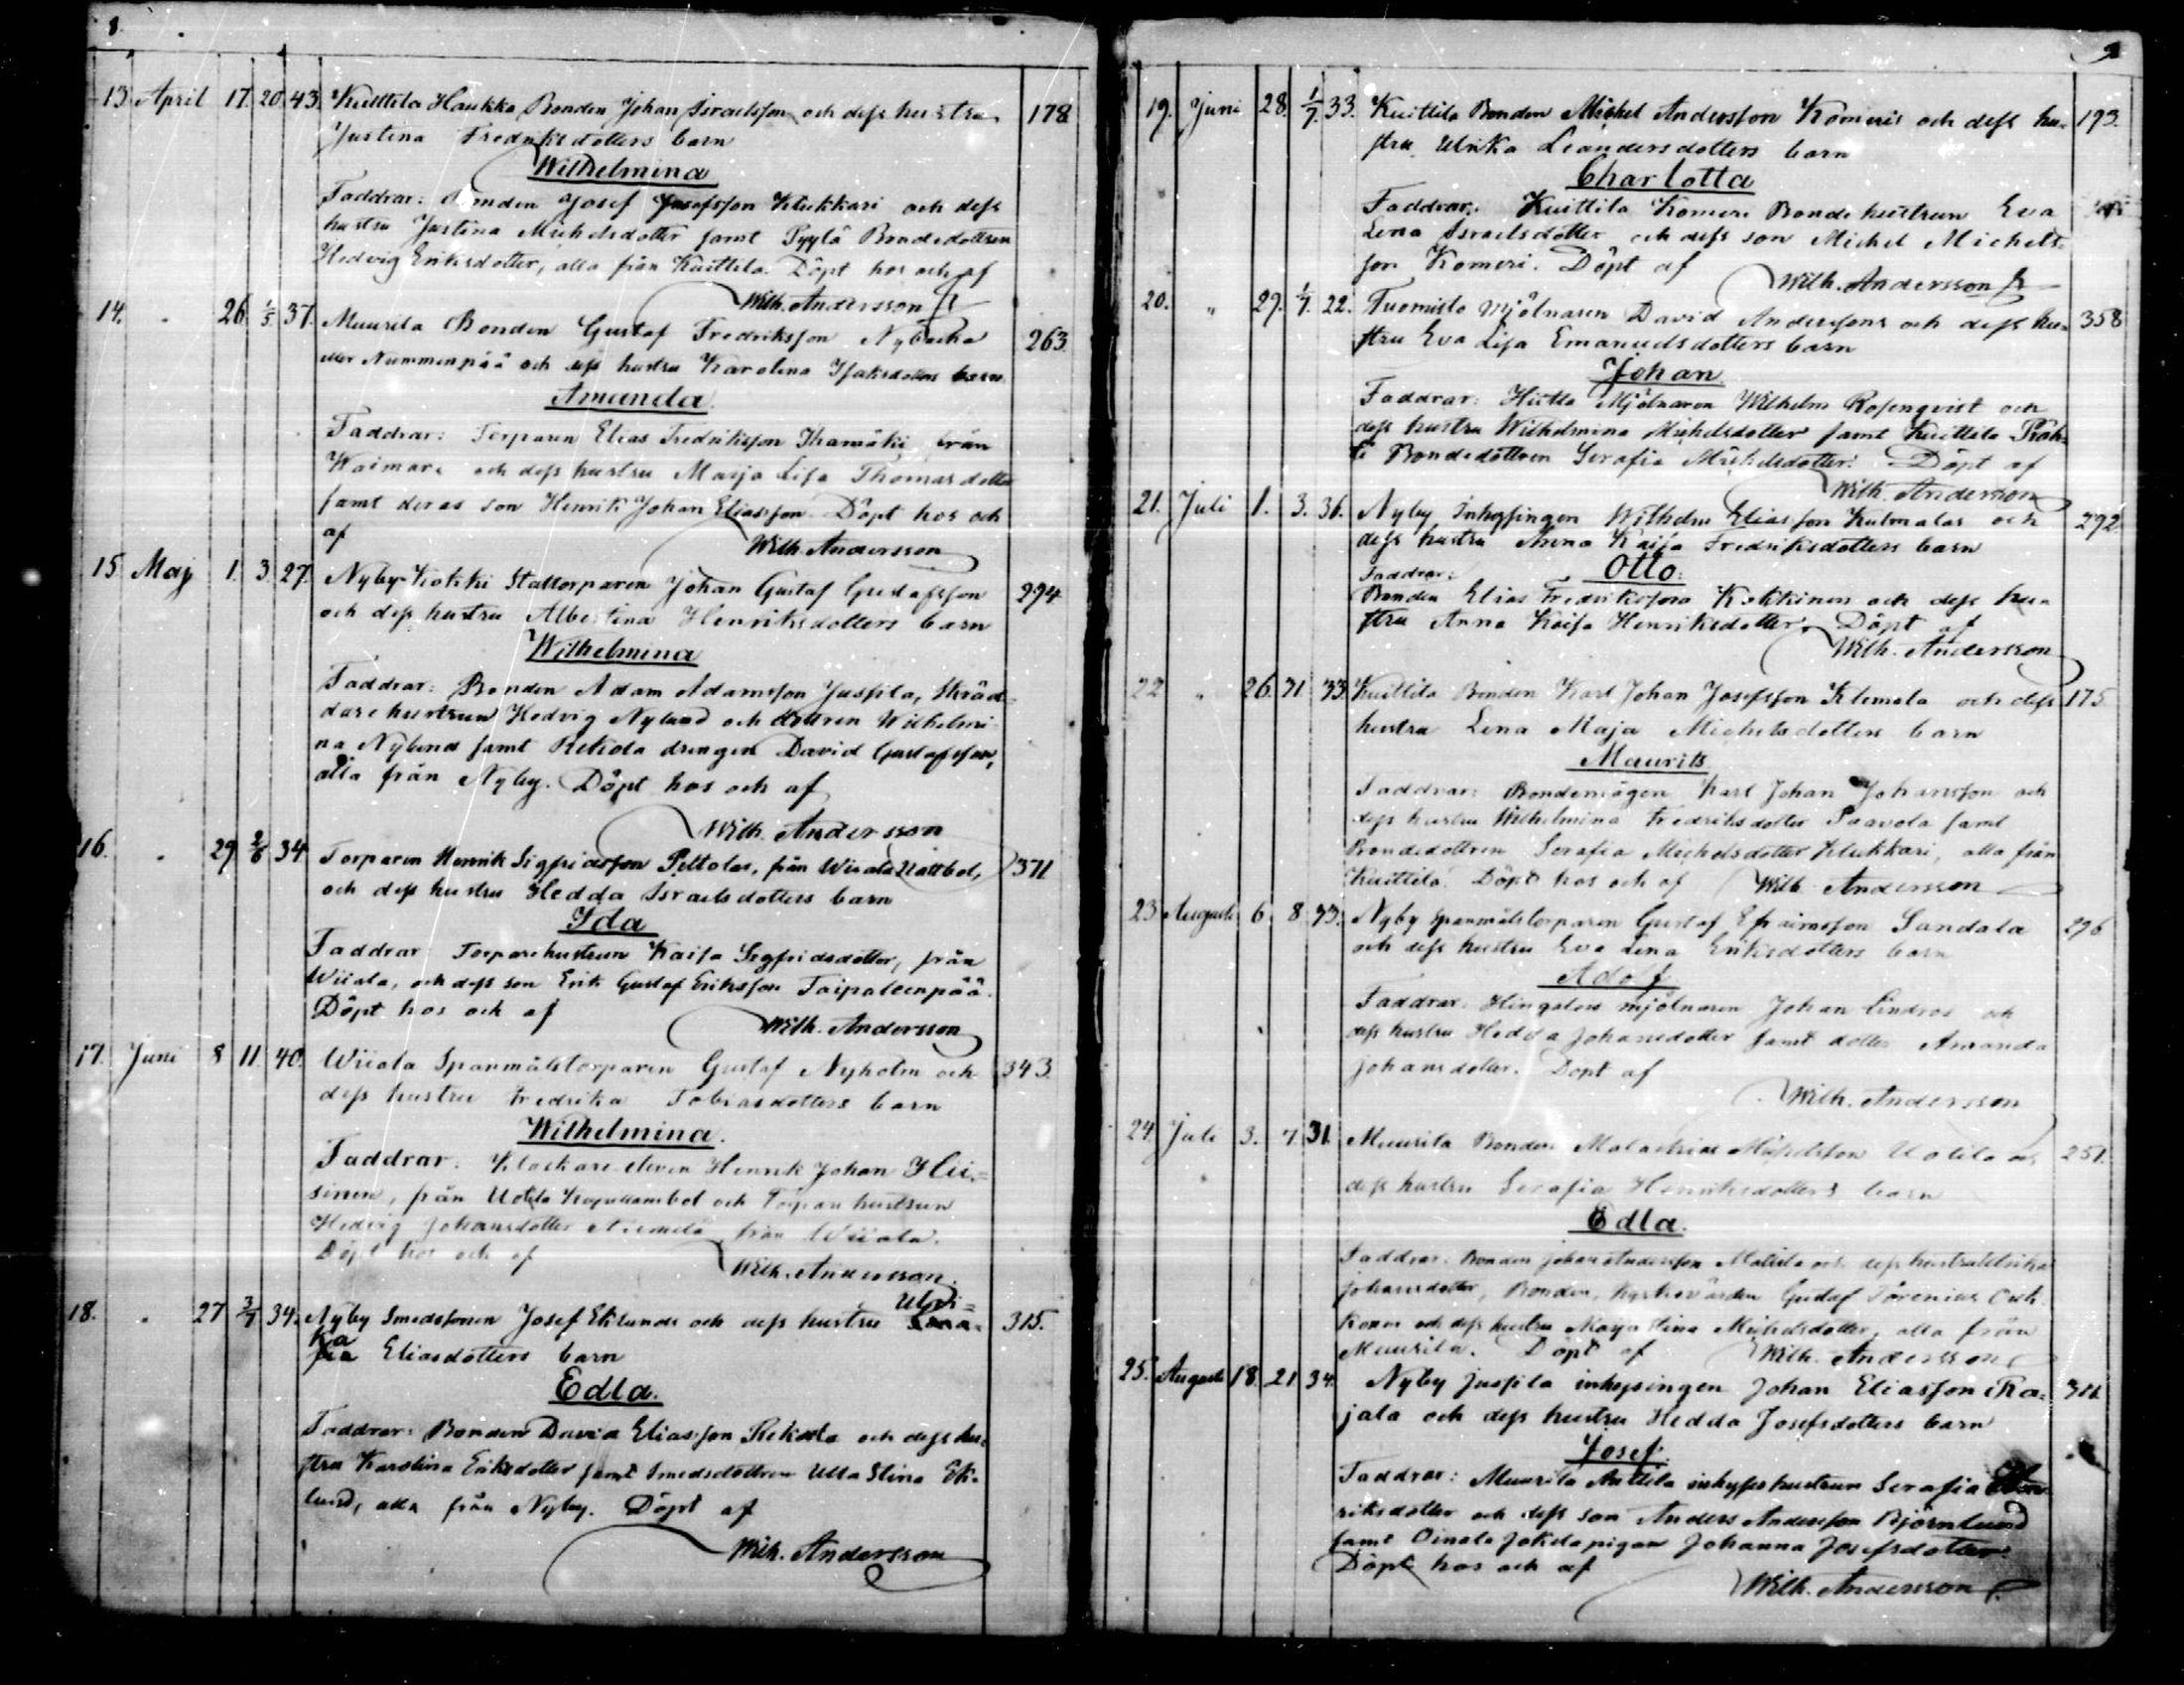 8.
13. April 17. 20. 43. Kuittila Haukka Bonden Johan Israelsson och dess hustru 178
Justina Fredriksdotters barn
Wilhelmina
Faddrar: Bonden Josef Josefsson Klukkari och dess
hustru Justina Michelsdotter samt Pyylä Bondedottren
Hedvig Eriksdotter, alla från Kuittila. Döpt hos och af
Wilh. Andersson
14. " 26 1/5 37. Muurila Bonden Gustaf Fredriksson Nybacka 263.
eller Nummenpää och dess hustru Karolina Isaksdotters barn
Amanda.
Faddrar: Torparen Elias Fredriksson Ihamäki från
Waimare och dess hustru Maja Lisa Thomasdotter
samt deras son Henrik Johan Eliasson. Döpt hos och
af
Wilh. Andersson
15 Maj 1. 3. 27. Nyby-Kokki Stattorparen Johan Gustaf Gustafsson 294
och dess hustru Albertina Henriksdotters barn
Wilhelmina
Faddrar: Bonden Adam Adamsson Jussila, Skräd-
darehustrun Hedvig Nylund och dottren Wilhelmi-
na Nylund samt Rekola drengen David Gustafsson,
alla från Nyby. Döpt hos och af
Wilh. Andersson
16. " 29 2/6 34 Torparen Henrik Sigfridsson Peltolas, från Wiiala 371
och dess hustru Hedda Israelsdotters barn
Ida
Faddrar: Torparehustrun Kaisa Sigfridsdotter, från
Wiiala, och dess son Erik Gustaf Eriksson Taipaleenpää.
Döpt hos och af
Wilh. Andersson
17. Juni 8 11. 40. Wiiala Spanmålstorparen Gustaf Nyholm och 343.
dess hustru Fredrika Tobiasdotters barn
Wilhelmina.
Faddrar: Klockare-eleven Henrik Johan Hii-
sinen, från Uotila och Torparehustrun
Hedvig Johansdotter Niemelä från Wiiala.
Döpt hos och af
Wilh. Andersson.
18. " 27 3/7 34. Nyby Smedssonen Josef Eklunds och dess hustru Ulri- 315.
ka Eliasdotters barn
Edla.
Faddrar: Bonden David Eliasson Rekola och dess hu-
stru Karolina Eriksdotter samt Smedsdottren Ulla Stina Ek-
lund, alla från Nyby. Döpt af
Wilh. Andersson
9
19. Juni 28. 1/7. 33. Kuittila Bonden Michel Andersson Komeris och dess hu- 193.
stru Ulrika Leandersdotters barn
Charlotta
Faddrar: Kuittila Komeri Bondehustrun Eva
Lena Israelsdotter och dess son Michel Michels-
son Komeri. Döpt af
Wilh. Andersson
20. " 29. 1/7. 22. Tuomisto Mjölnaren David Anderssons och dess hu- 358
stru Eva Lisa Emanuelsdotters barn
Johan.
Faddrar: Hiitta Mjölnaren Wilhelm Rosenqvist och
dess hustru Wilhelmina Michelsdotter samt Kuittila
Bondedottren Serafia Michelsdotter. Döpt af
Wilh. Andersson
21. Juli 1. 3. 36. Nyby Inhysingen Wilhelm Eliasson Kulmalas och 292.
dess hustru Anna Kaisa Fredriksdotters barn
Faddrar: Otto.
Bonden Elias Fredriksson Kokkinen och dess hu-
stru Anna Kaisa Henriksdotter. Döpt af
Wilh. Andersson
22 " 26. 31 33. Kuittila Bonden Karl Johan Josefsson Klemola och dess 175.
hustru Lena Maja Michelsdotters barn
Maurits
Faddrar: Bondemågen Karl Johan Johansson och
dess hustru Wilhelmina Fredriksdotter Paavola samt
Bondedottren Serafia Michelsdotter Klukkari, alla från
Kuittila. Döpt hos och af Wilh. Andersson
23 Augusti 6. 8 33. Nyby spanmålstorparen Gustaf Efraimsson Sandala 296
och dess hustru Eva Lena Eriksdotters barn
Adolf
Faddrar: mjölnaren Johan Lindros och
dess hustru Hedda Johansdotter samt dotter Amanda
Johansdotter. Döpt af
Wilh. Andersson
24. Juli 3. 7. 31. Muurila Bonden Malachias Michelsson Uotila och 251.
dess hustru Serafia Henriksdotters barn
Edla.
Faddrar: Bonden Johan Andersson Mattila och dess hustru Ulrika
Johansdotter, Bonden, Kyrkovärden Gustaf
och dess hustru Maja Stina Michelsdotter, alla från
Muurila. Döpt af Wilh. Andersson
25. Augusti 18. 21 34. Nyby Jussila inhysingen Johan Eliasson Ra-
jala och dess hustru Hedda Josefsdotters barn
Josef.
Faddrar: Muurila Anttila inhyseshustrun Serafia Hen-
riksdotter och dess son Anders Andersson Björnlund
samt Oinala Jokela pigan Johanna Josefsdotter.
Döpt hos och af
Wilh. Andersson